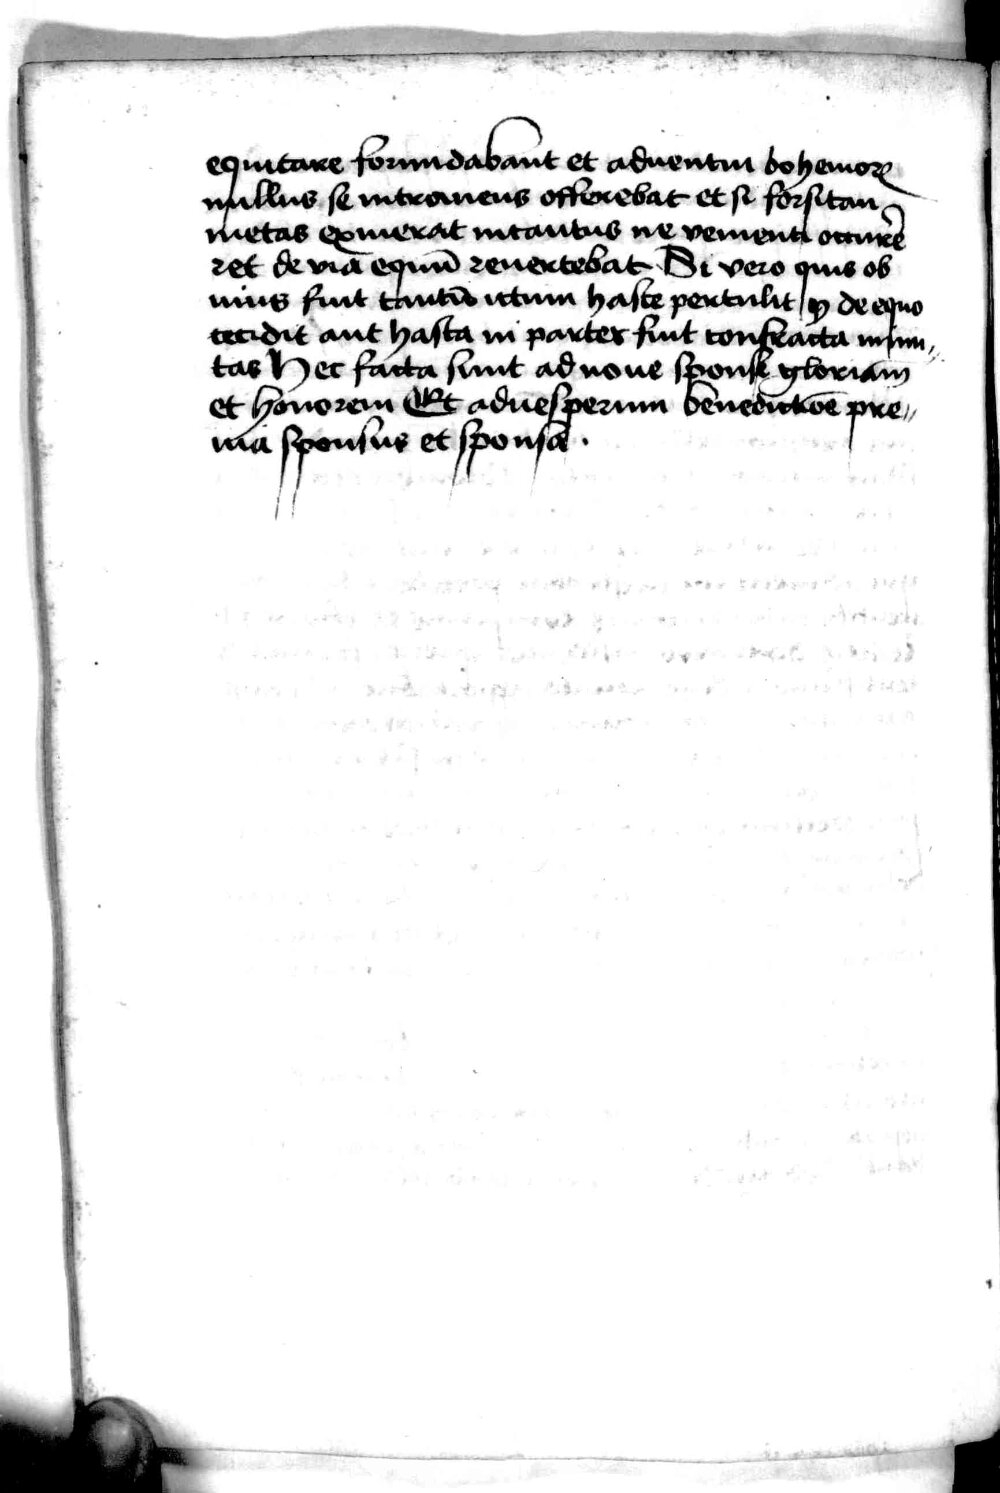 equitare formidabant et adventui bohemoꝝ
nullus se intromens offerebat et si forsitan
metas exinerat incautus ne venienti occurre
ret de via equū revertebat Si vero quis ob
uius fuit tantū ictum haste pertulit ꝙ de equo
cecidit aut hasta in partes fuit confracta minu〃
tas Hec facta sunt ad noue sponse gloriam
et honorem Et aduesperum benedictōe pre〃
uia sponsus et sponsa ·